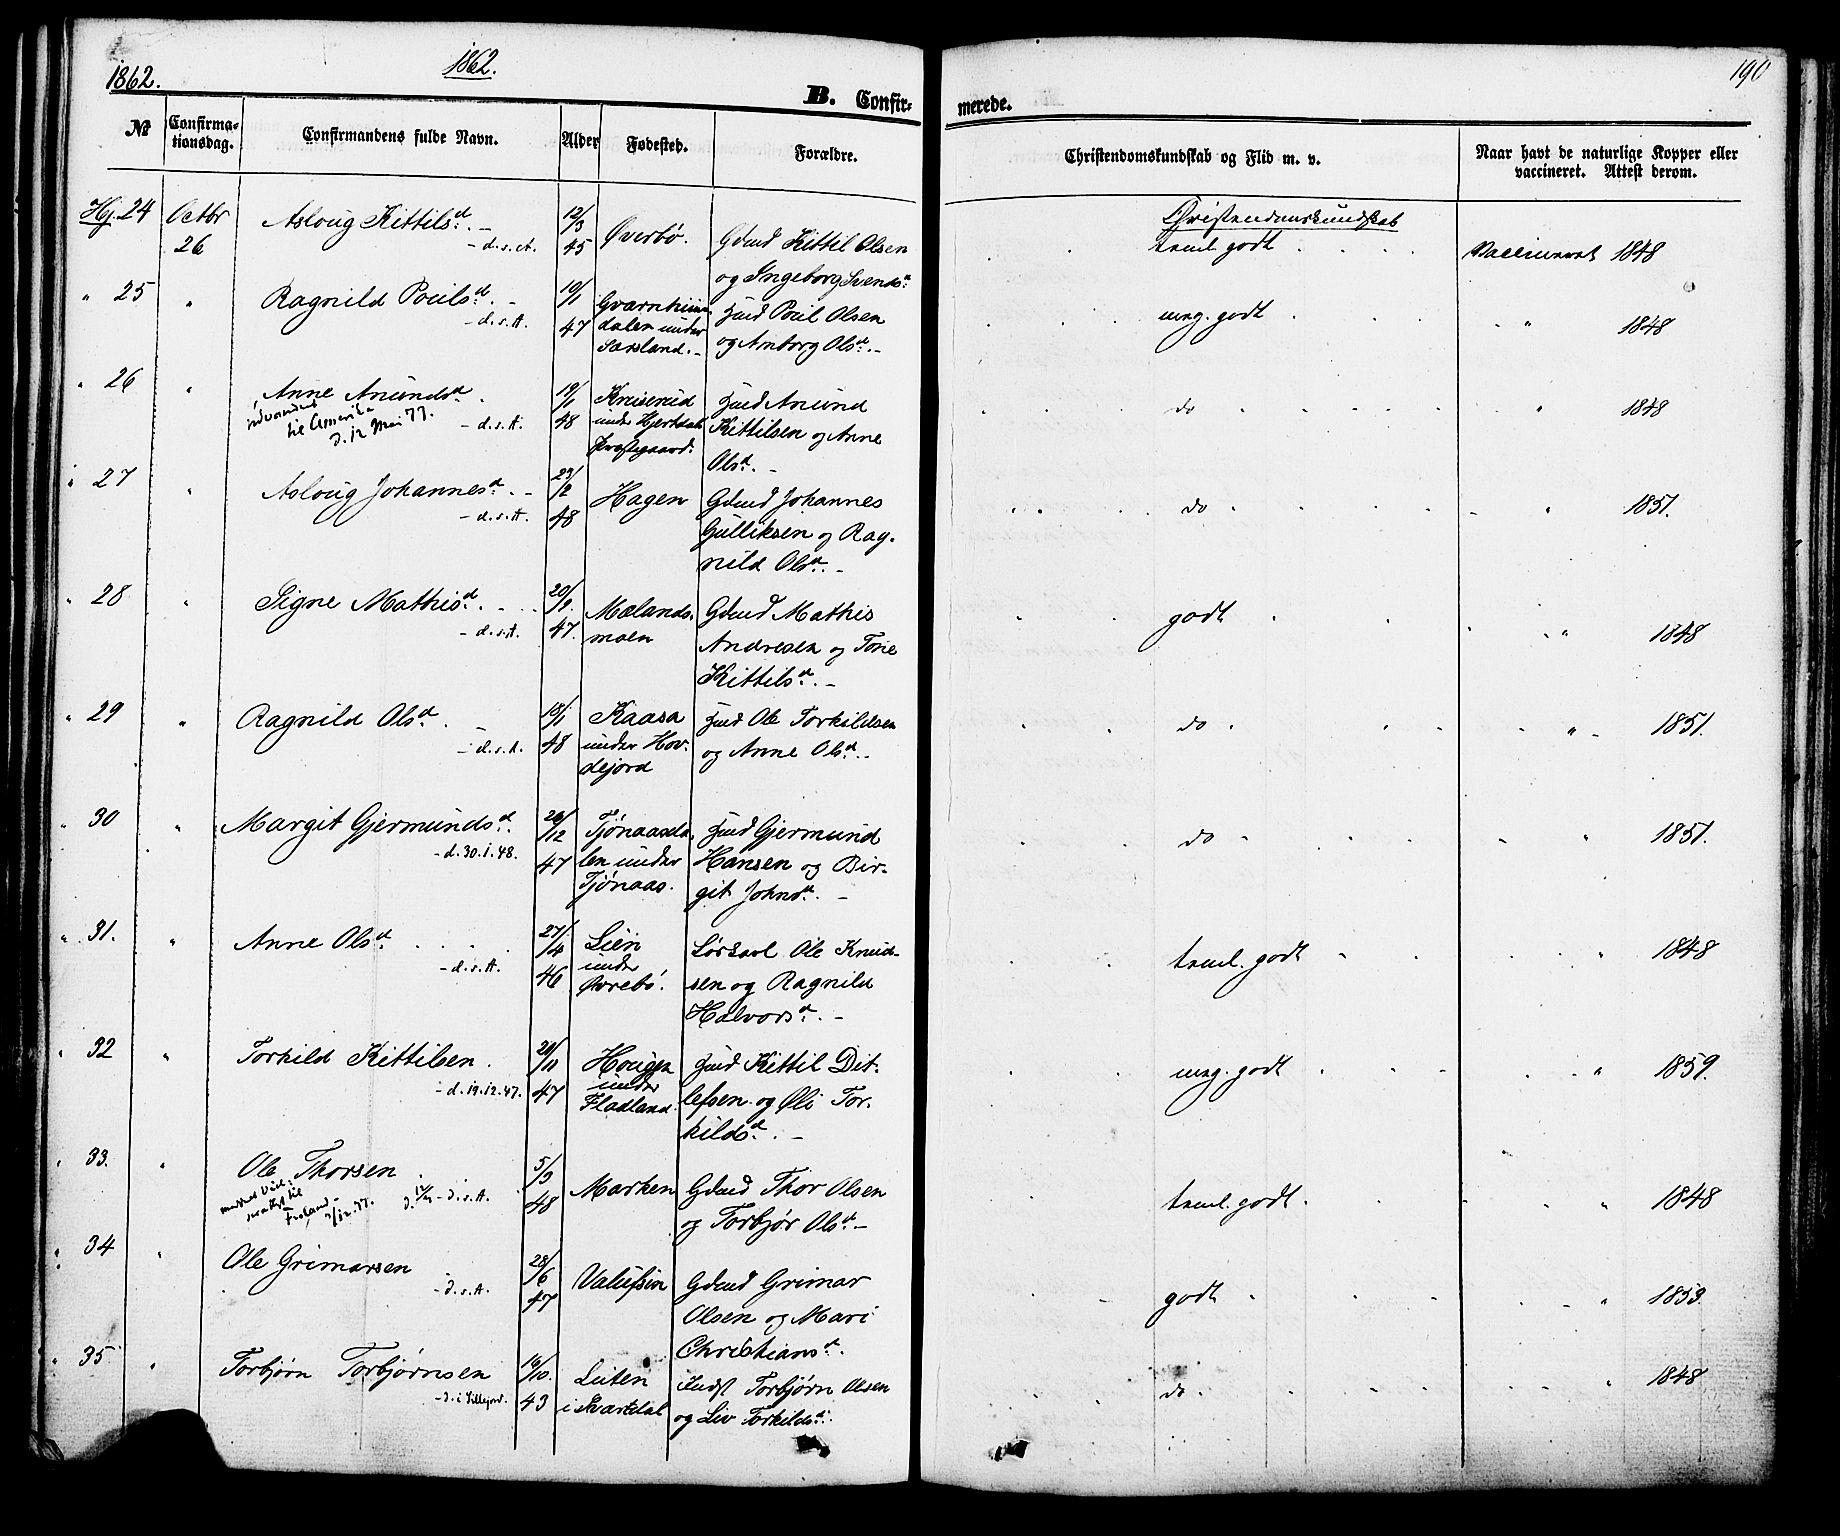 1862.
1862.
190
B. Confir-
merede.
№
Confirma-
tionsdag.
Confirmandens fulde Navn.
Alder
Fødested.
Forældre.
Christendomskundskab og Flid m. v.
Naar havt de naturlige Kopper eller
vaccineret. Attest derom.
Hj. 24 Octbr 26 Asloug Kittilsd. - d. s. A. 12/3 45 Øverbø. Gdmd Kittil Olsen
og Ingeborg Svendsd.
Christendomskundskab
teml. godt Vaccineret 1848
" 25 " Ragnild Poulsd. - d. s. A. 10/1 47
dalen under
Sarsland. -
Huusmd Poul Olsen
og Anborg Olsd. -
meg. godt " 1848
" 26 " Anne Anundsd.
- d. s. A.
udvandret
til Amerika
d. 12 Mai 77.
19/1 48
under Hjertdals
Præstegaard.
Anund
Kittilsen og Anne
Olsd. -
do " 1848
" 27 " Asloug Johannesd. - d. s. A. 29/2 48 Hagen Gdmd Johannes
Gulliksen og Rag-
nild Olsd. -
do " 1851.
" 28 " Signe Mathisd. - d. s. A. 47. Mælands-
moen
Gdmd Mathis
Andresen og Tone
Kittilsd. -
godt " 1848
" 29 " Ragnild Olsd. - d. s. A. 48 Kaasa
under Hov-
dejord
Ole Torkildsen
og Anne Olsd. -
do " 1851.
" 30 " Margit Gjermundsd. - d. 30.1.48. 47 Tjønaasda-
len under
Tjønaas.
Gjermund
Hansen og Bir-
git Johnsd. -
do " 1851.
" 31. " Anne Olsd. - d. s. A. 27/4 46 Lien
under
Øvrebø.
Ole Knud-
sen og Ragnild
Halvorsd. -
teml. godt " 1848
" 32 " Torkild Kittilsen. - d. 19.12.47. 47 Hougen
under
Fladland.
Kittil Dit-
lefsen og Øli Tor-
kildsd. -
meg. godt " 1859.
" 33. " Ole Thorsen - d. s. A. 5/3 48 Marken Gdmd Thor Olsen
og Torbjør Olsd. -
teml. godt. " 1848
" 34 " Ole Grimarsen - d. s. A. 28/6 47 Gdmd Grimar
Olsen og Mari
Christiansd.
godt " 1853.
" 35 " Torbjørn Torbjørnsen - d. i Sillejord. 16/10. 43
i Svartdal
Indst Torbjørn Olsen
og Liv Torkildsd.
do " 1848